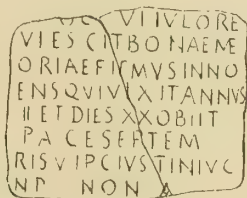 VI TVLO RE
VIES CIT BONAE ME
ORIAE FIRMVS INNO
ENS QVI VIXIT ANNVS
II ET DIES XX OBIIT
PACE SEPTEM
RIS VIP CIVSTINI VC
NP NON